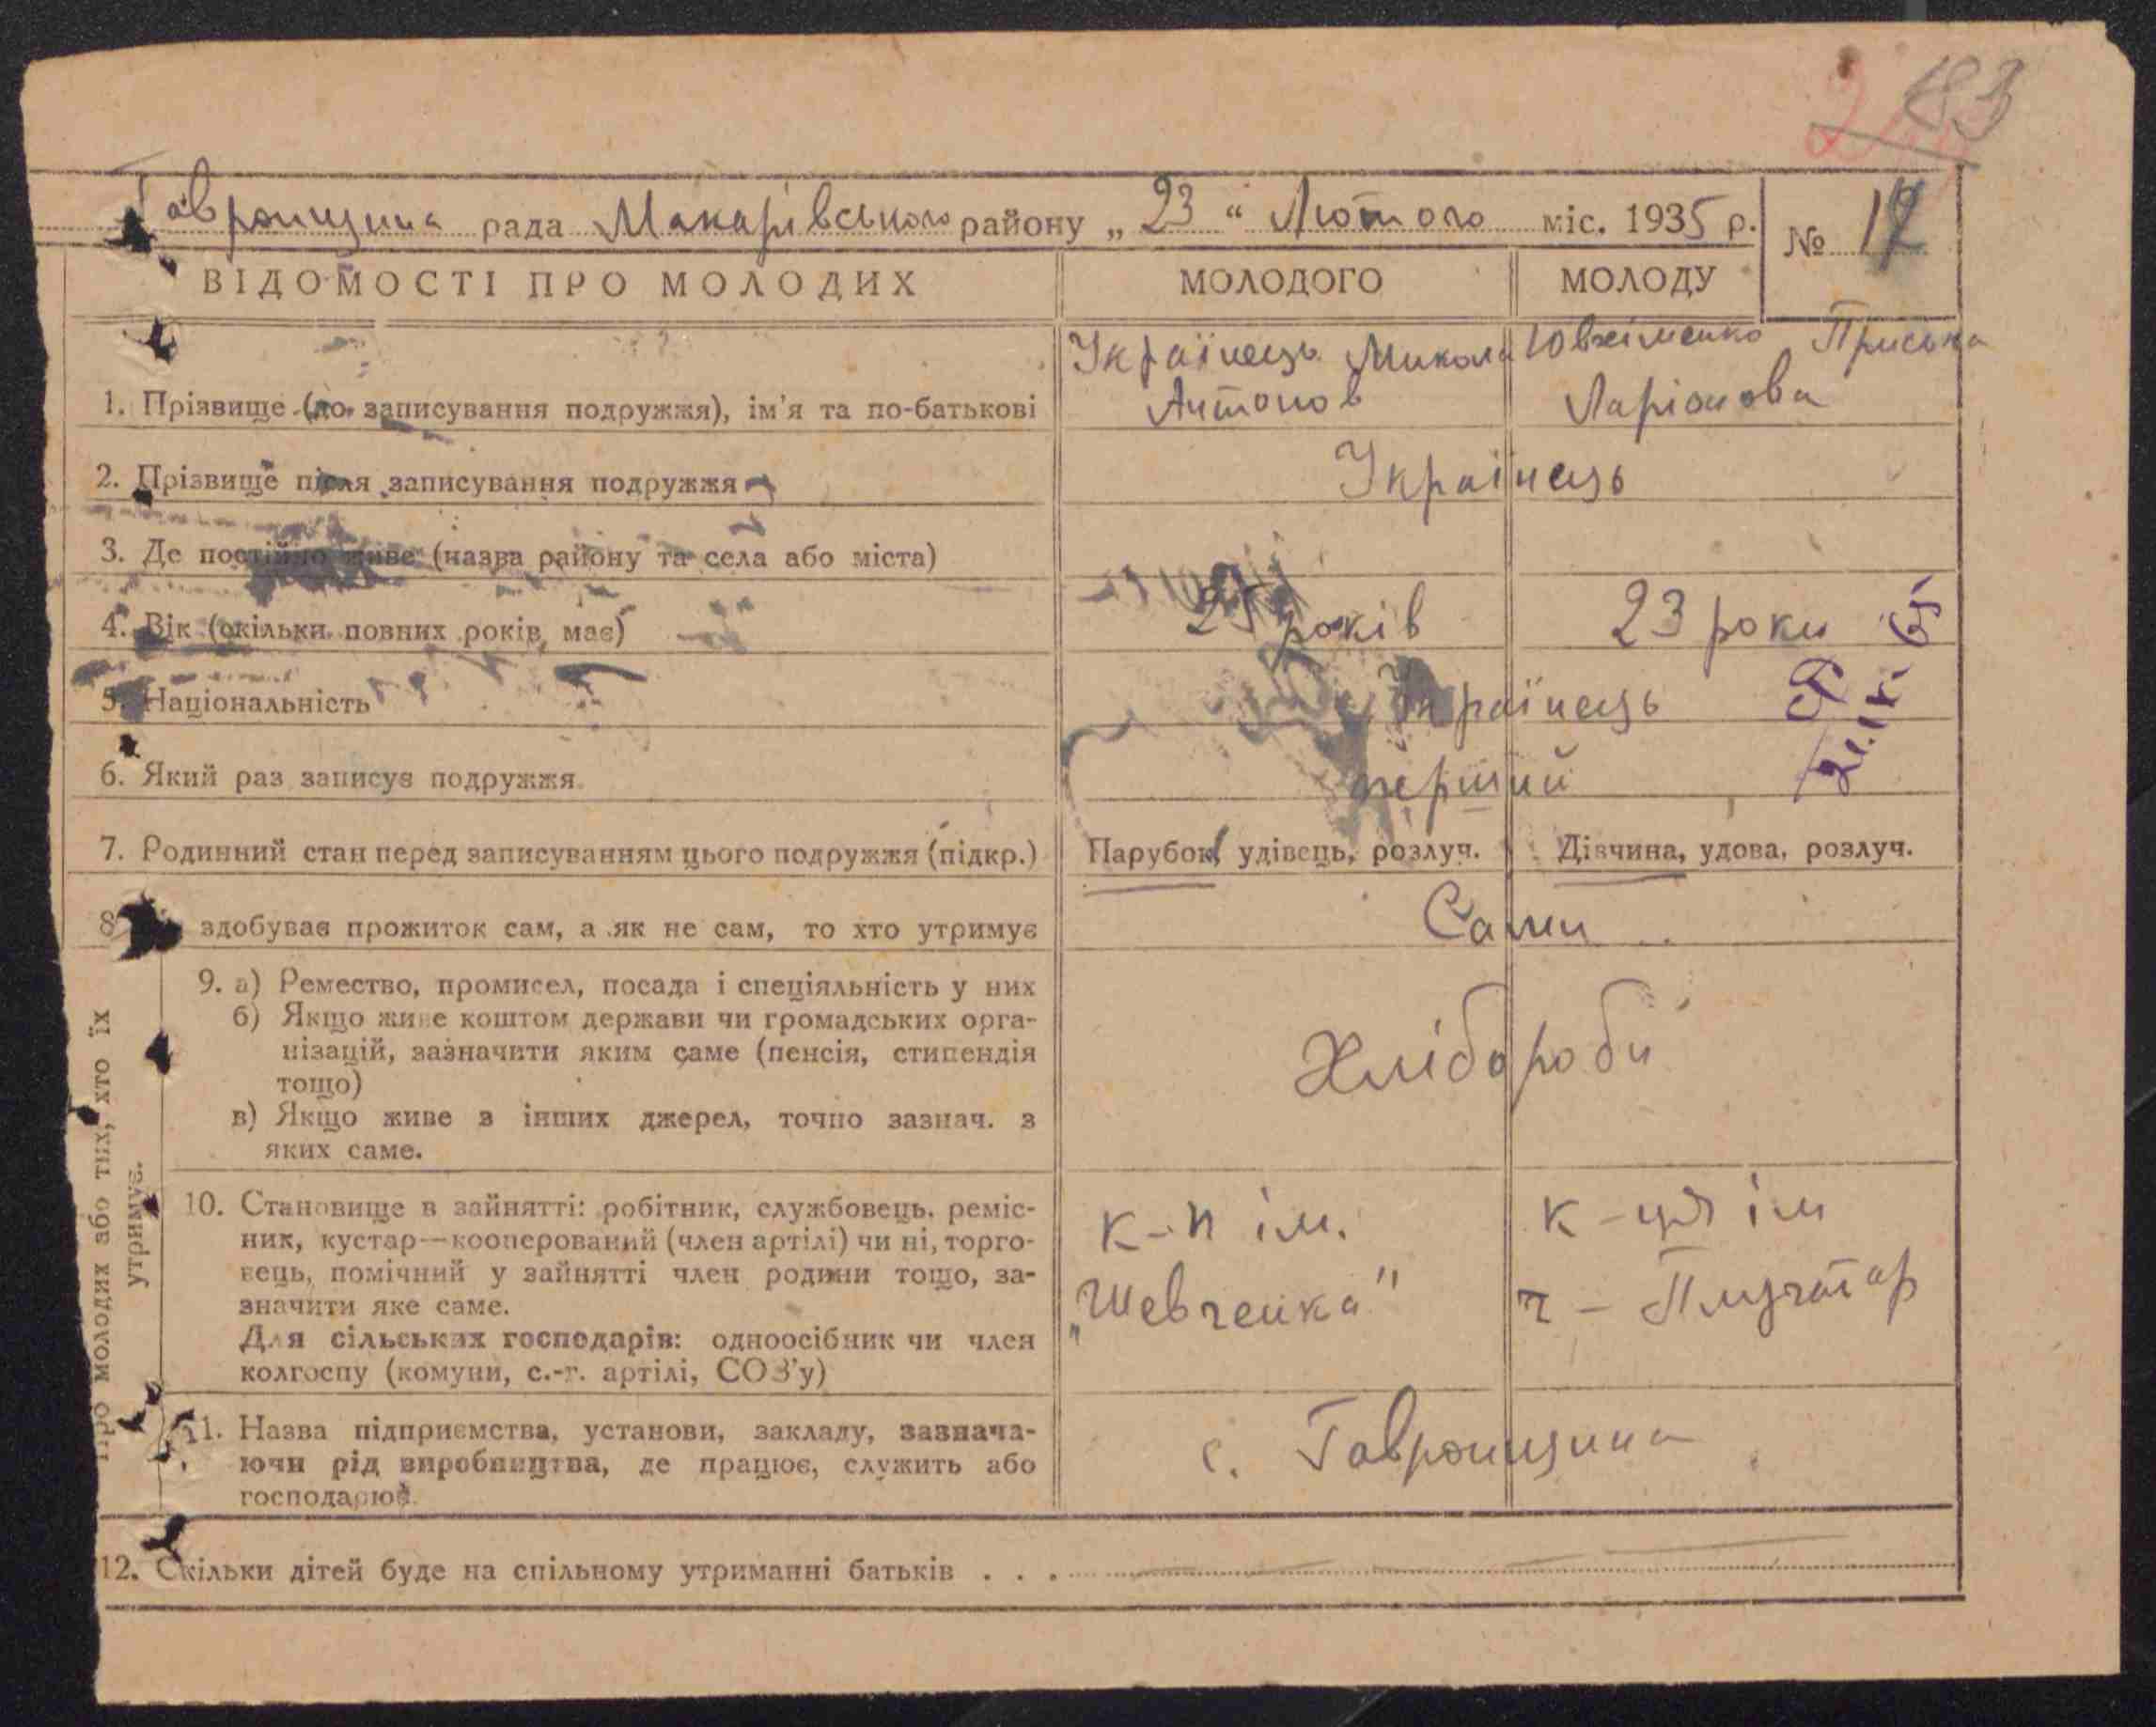 183
Гавронщина рада Макарівського району „ 23 “ Лютого міс. 1935 р.
№ 12
ВІДОМОСТІ ПРО МОЛОДИХ
МОЛОДОГО
МОЛОДУ
1. Прізвище (до записування подружжя), ім'я та по-батькові
Українець Микола
Антонов
Ювхіменко Приська
Ларіонова
2. Прізвище після записування подружжя
Українець
3. Де постійно живе (назва району та села або міста)
4. Вік (скільки повних років має)
25 років
23 роки
5. Національність
Українець
6. Який раз записує подружжя
перший
7. Родинний стан перед записуванням цього подружжя (підкр.)
Парубок, удівець, розлуч.
Дівчина, удова, розлуч.
8. здобуває прожиток сам, а як не сам, то хто утримує
Сами
Про молодих або тих, хто їх
утримує.
9. а) Ремество, промисел, посада і спеціяльність у них
б) Якщо живе коштом держави чи громадських орга-
нізацій, зазначити яким саме (пенсія, стипендія
тощо)
в) Якщо живе з інших джерел, точно зазнач. з
яких саме.
Хлібороби
10. Становище в зайнятті: робітник, службовець, реміс-
ник, кустар—кооперований (член артілі) чи ні, торго-
вець, помічний у зайнятті член родини тощо, за-
значити яке саме.
Для сільських господарів: одноосібник чи член
колгоспу (комуни, с.-г. артілі, СОЗ'у)
к-п ім.
„Шевченка"
к-ця ім
ч - Плугатар
11. Назва підприємства, установи, закладу, зазнача-
ючи рід виробництва, де працює, служить або
господарює
с. Гавронщина
12. Скільки дітей буде на спільному утриманні батьків . . .